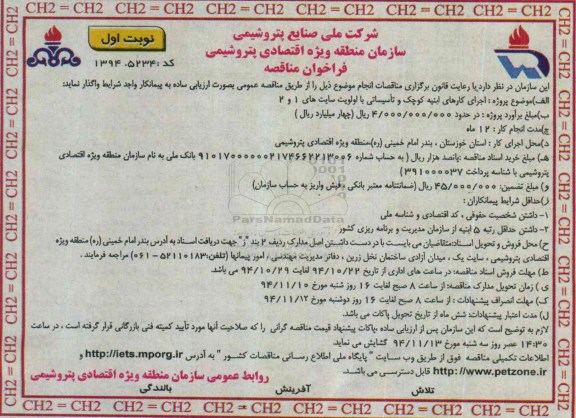 CH2 = CH2 = CH2 = CH2 = CH2 = CH2 = CH2 = CH2 = CH2 = CH2
شرکت ملی صنایع پتروشیمی
نوبت اول
سازمان منطقه ویژه اقتصادی پتروشیمی
فراخوان مناقصه
کد :۱۳۹۴.۵۲۳۴
این سازمان در نظر دارد با رعایت قانون برگزاری مناقصات انجام موضوع ذیل را از طریق مناقصه عمومی بصورت ارزیابی ساده به پیمانکار واجد شرایط واگذار نماید:
الف)موضوع پروژه : اجرای کارهای ابنیه کوچک و تأسیساتی با اولویت سایت های ۱ و ۲
ب)مبلغ برآورد پروژه : در حدود ۴/۰۰۰/۰۰۰/۰۰۰ ریال (چهار میلیارد ریال )
ج)مدت انجام کار : ۱۲ ماه
د)محل اجرای کار : استان خوزستان ، بندر امام خمینی (ره)منطقه ویژه اقتصادی پتروشیمی
هـ)مبلغ خرید اسناد مناقصه :پانصد هزار ریال ( به حساب شماره ۹۱۰۱۷۰۰۰۰۰۰۲۱۷۴۶۶۲۲۱۳۰۰۶ بانک ملی به نام سازمان منطقه ویژه اقتصادی
پتروشیمی با شناسه پرداخت ۳۹۱۰۰۰۰۳۷ )
و) مبلغ تضمین: ۴۵/۰۰۰/۰۰۰ ریال (ضمانتنامه معتبر بانکی ،فیش واریز به حساب سازمان)
ز)حداقل شرایط پیمانکاران :
۱- داشتن شخصیت حقوقی ، کد اقتصادی و شناسه ملی
۲- داشتن حداقل رتبه ۵ ابنیه از سازمان مدیریت و برنامه ریزی کشور
ح)محل فروش و تحویل اسناد:متقاضیان می بایست با در دست داشتن اصل مدارک ردیف ۲ بند "ز" جهت دریافت اسناد به آدرس بندر امام خمینی (ره) منطقه ویژه
اقتصادی پتروشیمی ، سایت یک ، میدان آزادی ساختمان نخل زرین ، دفاتر مدیریت مهندسی ، امور پیمانها (تلفن:۵۲۱۱۰۱۸۳ - ۰۶۱) مراجعه فرمایند .
ط) مهلت فروش اسناد مناقصه: در ساعت های اداری از تاریخ ۹۴/۱۰/۲۲ لغایت ۹۴/۱۰/۲۹ می باشد.
ی ) زمان تحویل مدارک مناقصه: از ساعت ۸ صبح لغایت ۱۶ روز شنبه مورخ ۹۴/۱۱/۱۰
ک) مهلت انصراف پیشنهادات : از ساعت ۸ صبح لغایت ۱۶ روز دوشنبه مورخ ۹۴/۱۱/۱۲
ل) مدت اعتبار پیشنهادات: شش ماه از تاریخ تحویل پاکات می باشد.
لازم به توضیح است که این سازمان پس از ارزیابی ساده ،پاکات پیشنهاد قیمت مناقصه گرانی را که صلاحیت آنها مورد تأیید کمیته فنی بازرگانی قرار گرفته است ، در ساعت
۱۴:۳۰ عصر روز سه شنبه مورخ ۹۴/۱۱/۱۳ گشایش می نماید.
اطلاعات تکمیلی مناقصه فوق از طریق وب سایت " پایگاه ملی اطلاع رسانی مناقصات کشور " به آدرس http://iets.mporg.ir و
http://www.petzone.ir قابل دسترسی می باشد.
روابط عمومی سازمان منطقه ویژه اقتصادی پتروشیمی
تلاش آفرینش بالندگی
CH2 = CH2 = CH2 = CH2 = CH2 = CH2 = CH2 = CH2 = CH2 = CH2